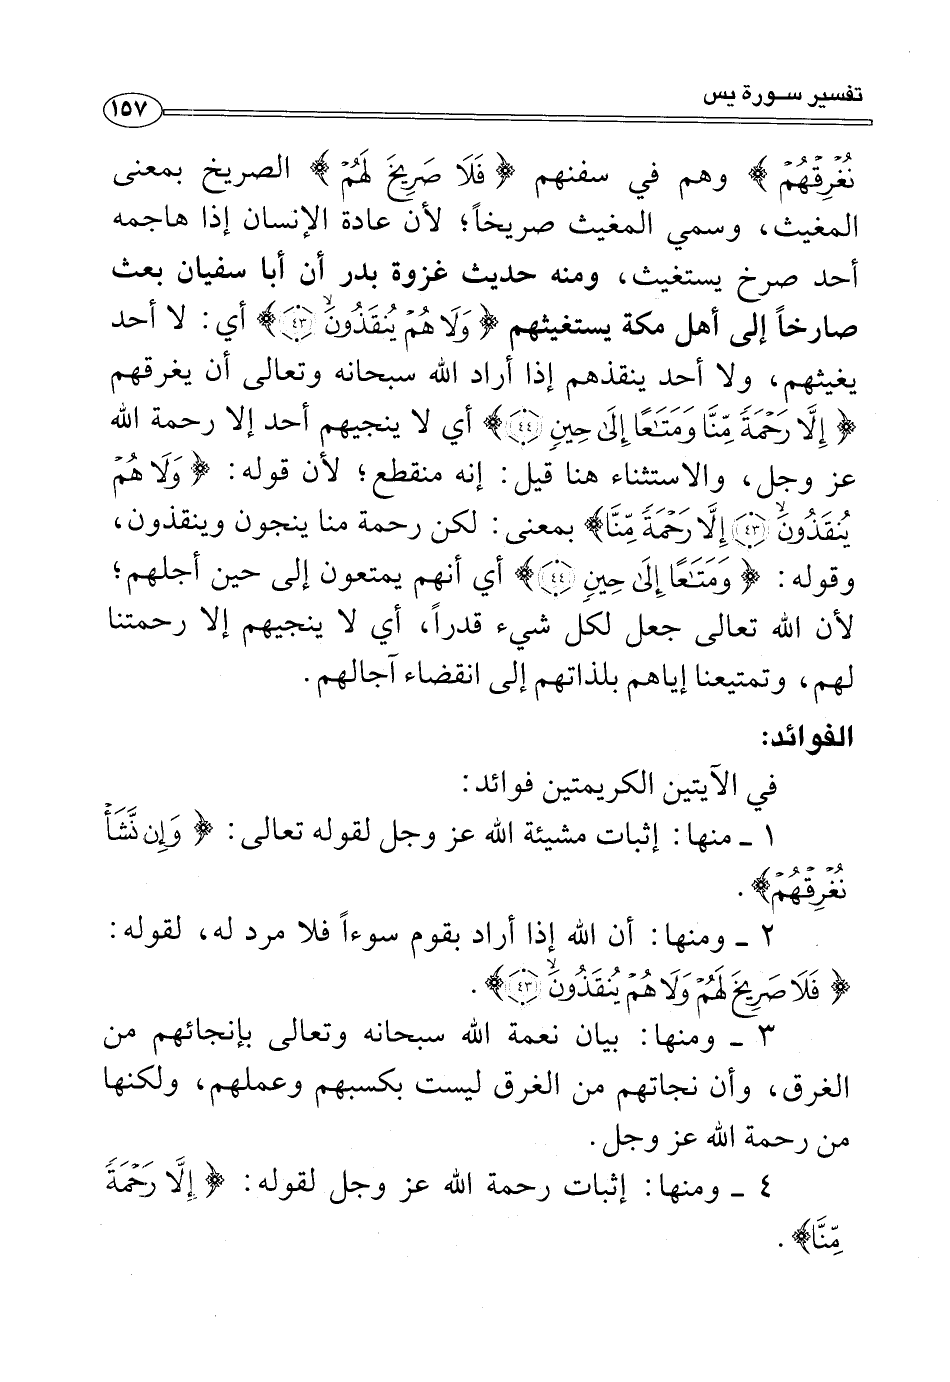 تفسير سورة يس
١٥٧
نُغْرِقْهُمْ ﴾ وهم في سفنهم ﴿ فَلَا صَرِيخَ لَهُمْ ﴾ الصريخ بمعنى
المغيث، وسمي المغيث صريخاً؛ لأن عادة الإنسان إذا هاجمه
أحد صرخ يستغيث، ومنه حديث غزوة بدر أن أبا سفيان بعث
صارخاً إلى أهل مكة يستغيثهم ﴿ وَلَا هُمْ يُنقَذُونَۙ ٤٣ ﴾ أي: لا أحد
يغيثهم، ولا أحد ينقذهم إذا أراد الله سبحانه وتعالى أن يغرقهم
﴿ إِلَّا رَحْمَةً مِّنَّا وَمَتَٰعًا إِلَىٰ حِينٍ ٤٤ ﴾ أي لا ينجيهم أحد إلا رحمة الله
عز وجل، والاستثناء هنا قيل: إنه منقطع؛ لأن قوله: ﴿ وَلَا هُمْ
يُنقَذُونَۙ ٤٣ إِلَّا رَحْمَةً مِّنَّا﴾ بمعنى: لكن رحمة منا ينجون وينقذون،
وقوله: ﴿ وَمَتَٰعًا إِلَىٰ حِينٍ ٤٤ ﴾ أي أنهم يمتعون إلى حين أجلهم؛
لأن الله تعالى جعل لكل شيء قدراً، أي لا ينجيهم إلا رحمتنا
لهم، وتمتيعنا إياهم بلذاتهم إلى انقضاء آجالهم.
الفوائد:
في الآيتين الكريمتين فوائد:
١ ـ منها: إثبات مشيئة الله عز وجل لقوله تعالى: ﴿ وَإِن نَّشَأْ
نُغْرِقْهُمْ﴾ .
٢ ـ ومنها: أن الله إذا أراد بقوم سوءاً فلا مرد له، لقوله:
﴿ فَلَا صَرِيخَ لَهُمْ وَلَا هُمْ يُنقَذُونَۙ ٤٣ ﴾ .
٣ ـ ومنها: بيان نعمة الله سبحانه وتعالى بإنجائهم من
الغرق، وأن نجاتهم من الغرق ليست بكسبهم وعملهم، ولكنها
من رحمة الله عز وجل.
٤ ـ ومنها: إثبات رحمة الله عز وجل لقوله: ﴿ إِلَّا رَحْمَةً
مِّنَّا﴾ .